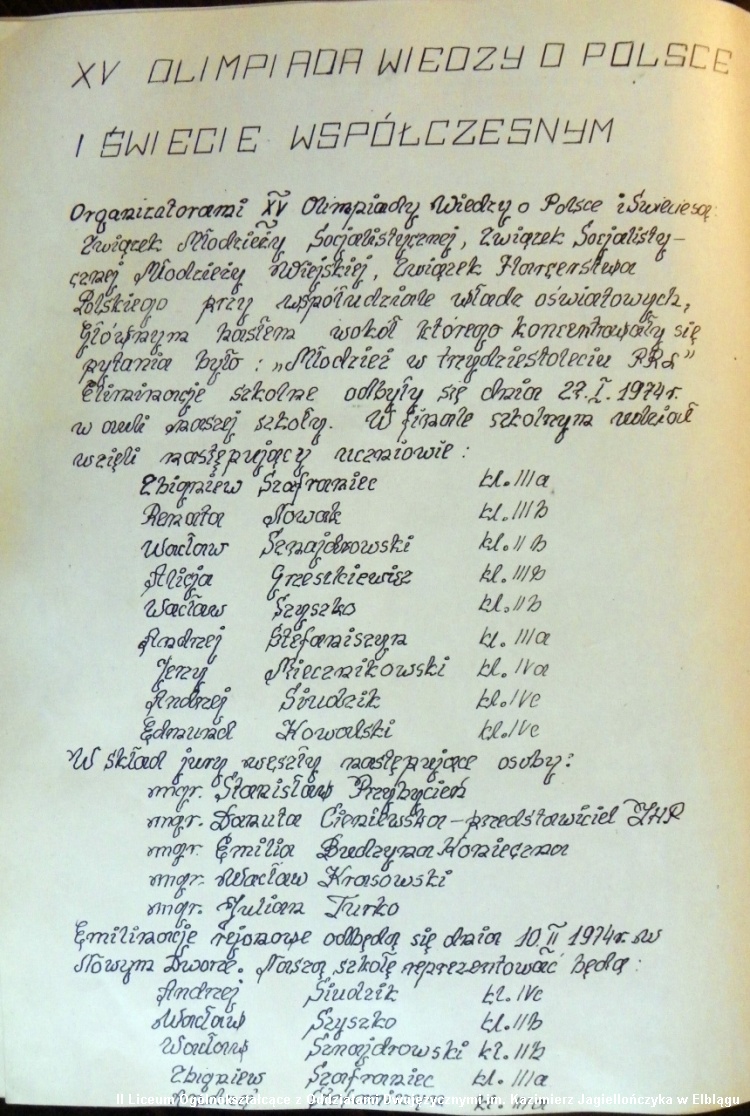 XV OLIMPIADA WIEDZY O POLSCE
I ŚWIECIE WSPÓŁCZESNYM
Organizatorami XV Olimpiady Wiedzy o Polsce i Świecie są:
Związek Młodzieży Socjalistycznej, Związek Socjalisty-
cznej Młodzieży Wiejskiej, Związek Harcerstwa
Polskiego przy współudziale władz oświatowych,
Głównym hasłem wokół którego koncentrowały się
pytania było: „Młodzież w trzydziestoleciu PRL"
Eliminacje szkolne odbyły się dnia 27.I.1974r.
w auli naszej szkoły. W finale szkolnym udział
wzięli następujący uczniowie:
Zbigniew Szafraniec kl. IIIa
Renata Nowak kl. III b
Wacław Sznajdrowski kl. II b
Alicja Grzeszkiewicz kl. IIIb
Wacław Szyszko kl. IIb
Andrzej Stefaniszyn kl. IIIa
Jerzy Miecznikowski kl. IVa
Andrzej Siudzik kl. IVc
Edmund Kowalski kl. IVc
W skład jury weszły następujące osoby:
mgr. Stanisław Przybycień
mgr. Danuta - przedstawiciel ZHP
mgr. Emilia Budzyna Konieczna
mgr. Wacław Krasowski
mgr. Julian Turko
Emilinacje rejonowe odbędą się dnia 10.II 1974r. w
Nowym Dworze. Naszą szkołę reprezentować będą:
Andrzej Siudzik kl. IVc
Wacław Szyszko kl. IIb
Wacław Sznajdrowski kl. IIb
Zbigniew Szafraniec kl. IIIa
II Liceum Ogólnokształcące z Oddziałami Dwujęzycznymi im. Kazimierz Jagiellończyka w Elblągu